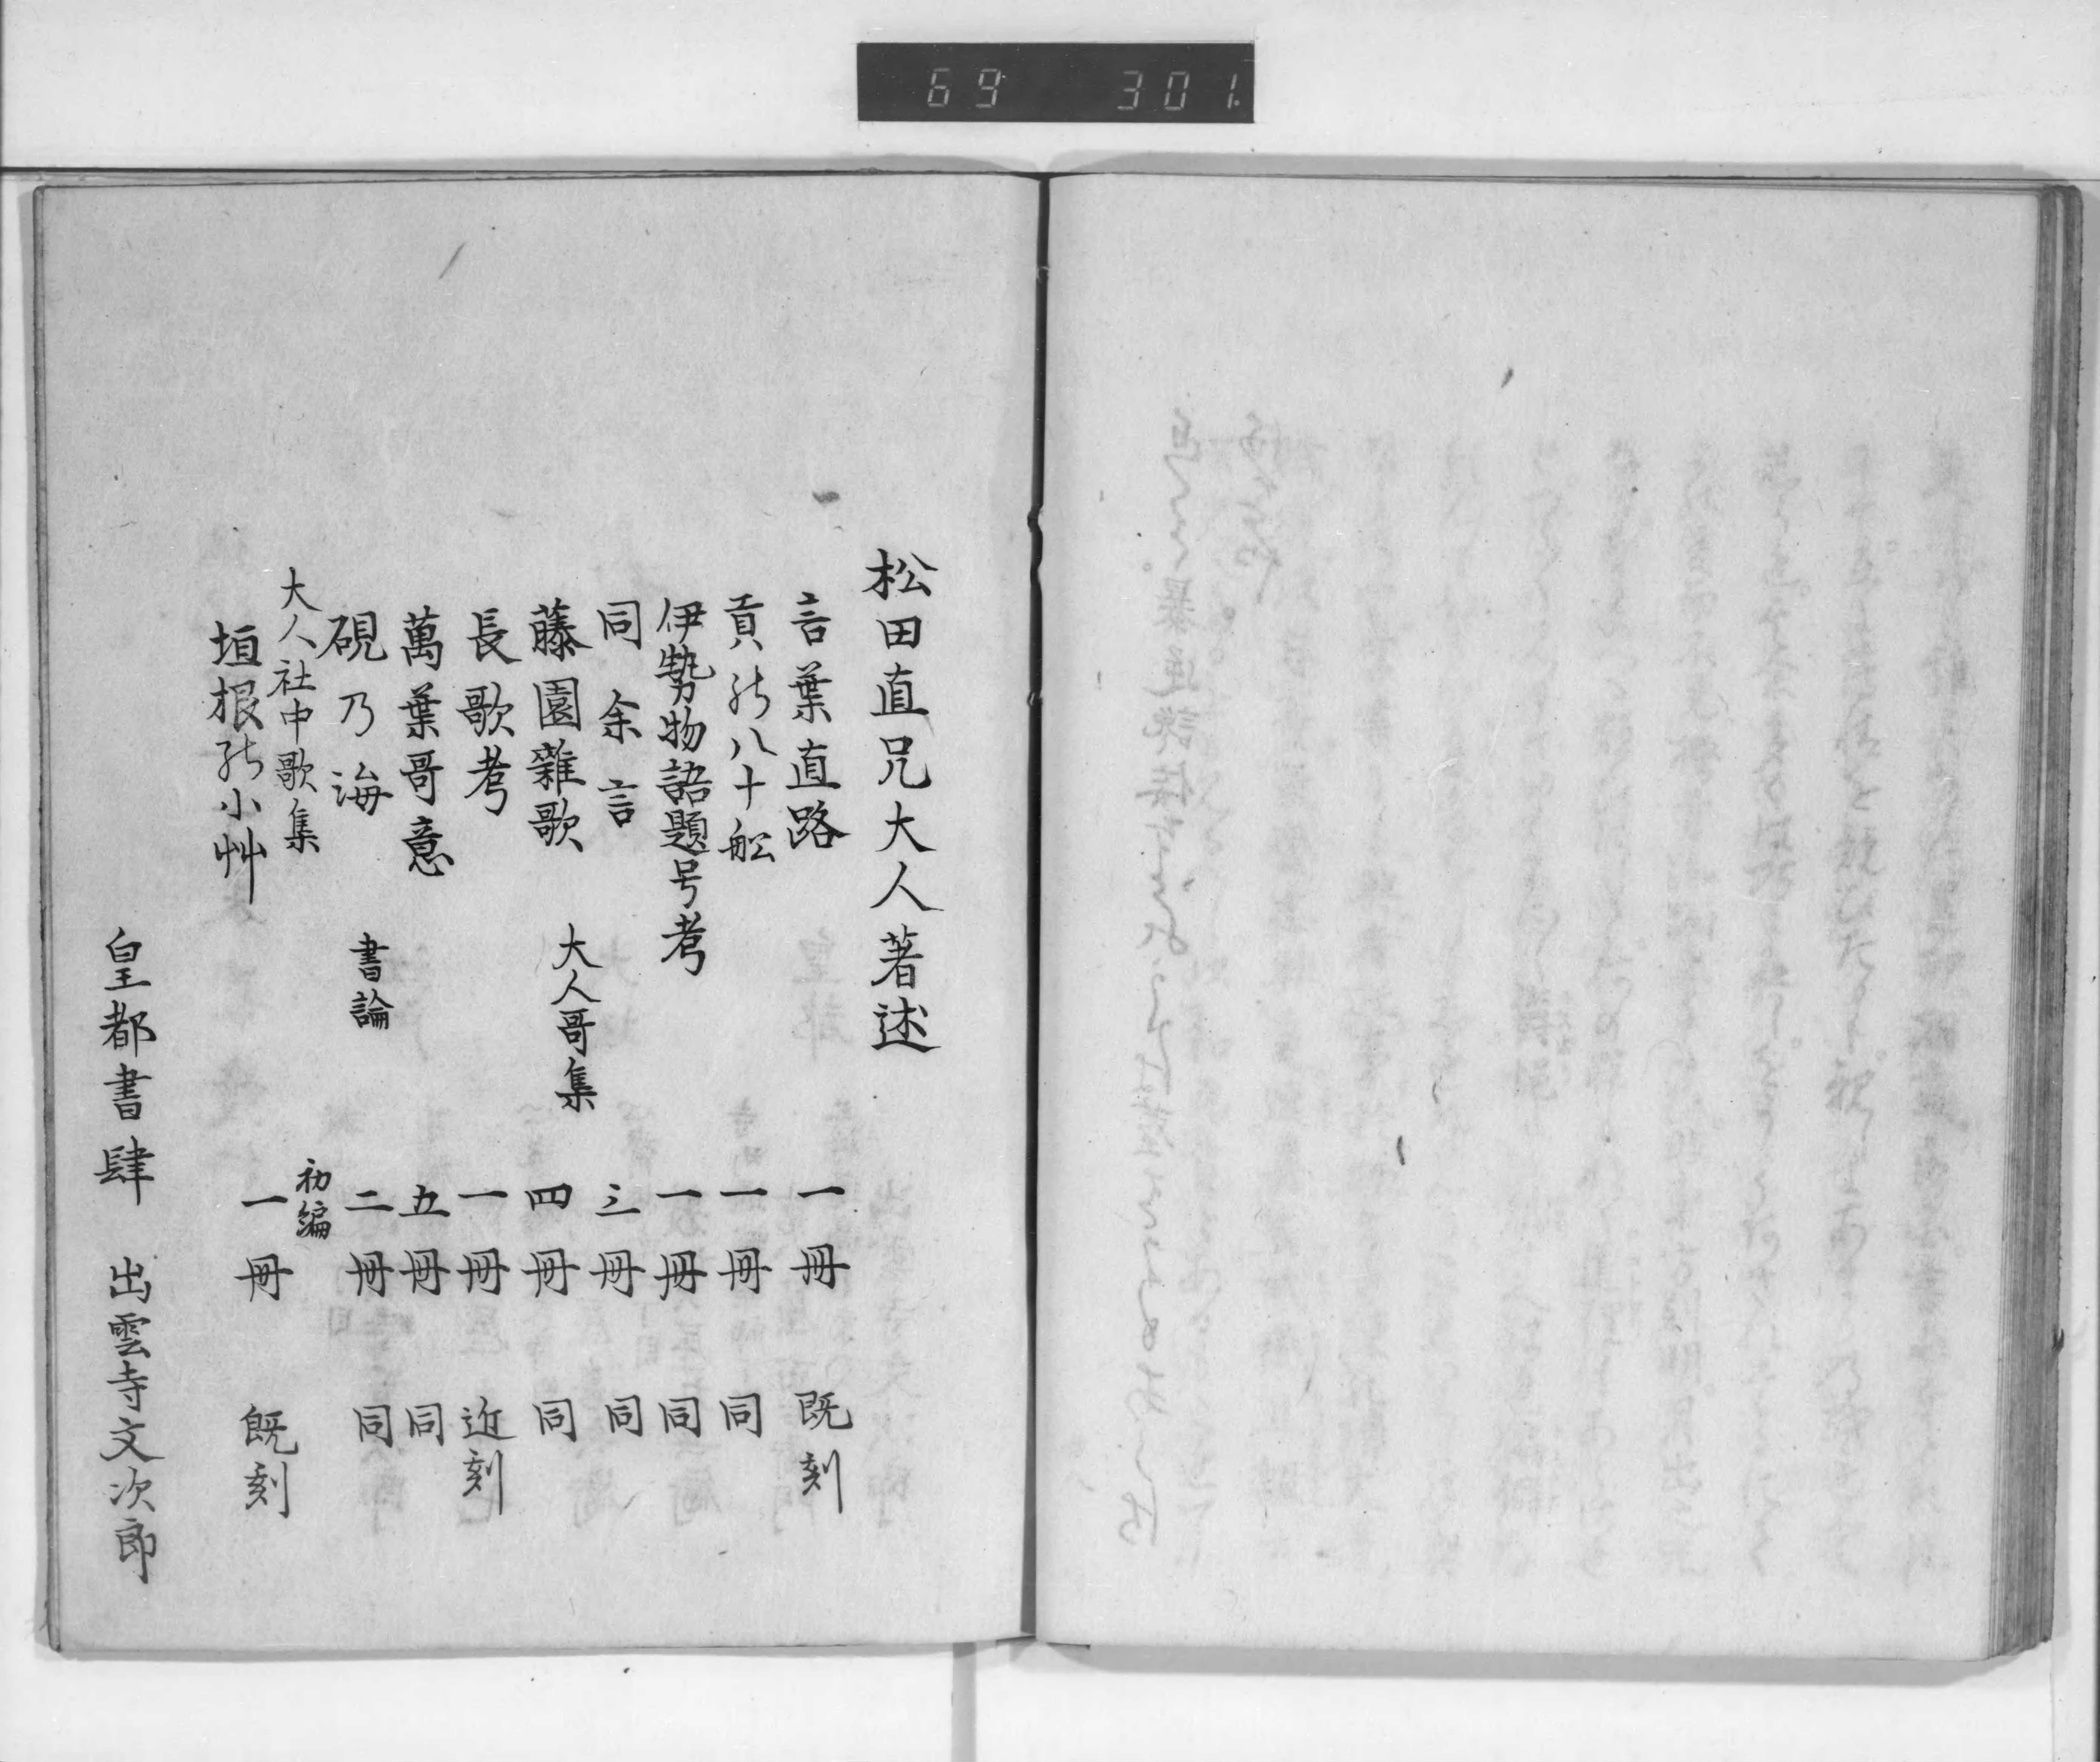 69 301
松田直兄大人著述
言葉直路 一冊 既刻
貢能八十舩 一冊 同
伊勢物語題号考 一冊 同
同余言 三冊 同
藤園雜歌 大人哥集 四冊 同
長歌考 一冊 近刻
萬葉哥意 五冊 同
硯乃海 書論 二冊 同
大人社中歌集 初編
垣根能小艸 一冊 既刻
皇都書肆 出雲寺文次郎